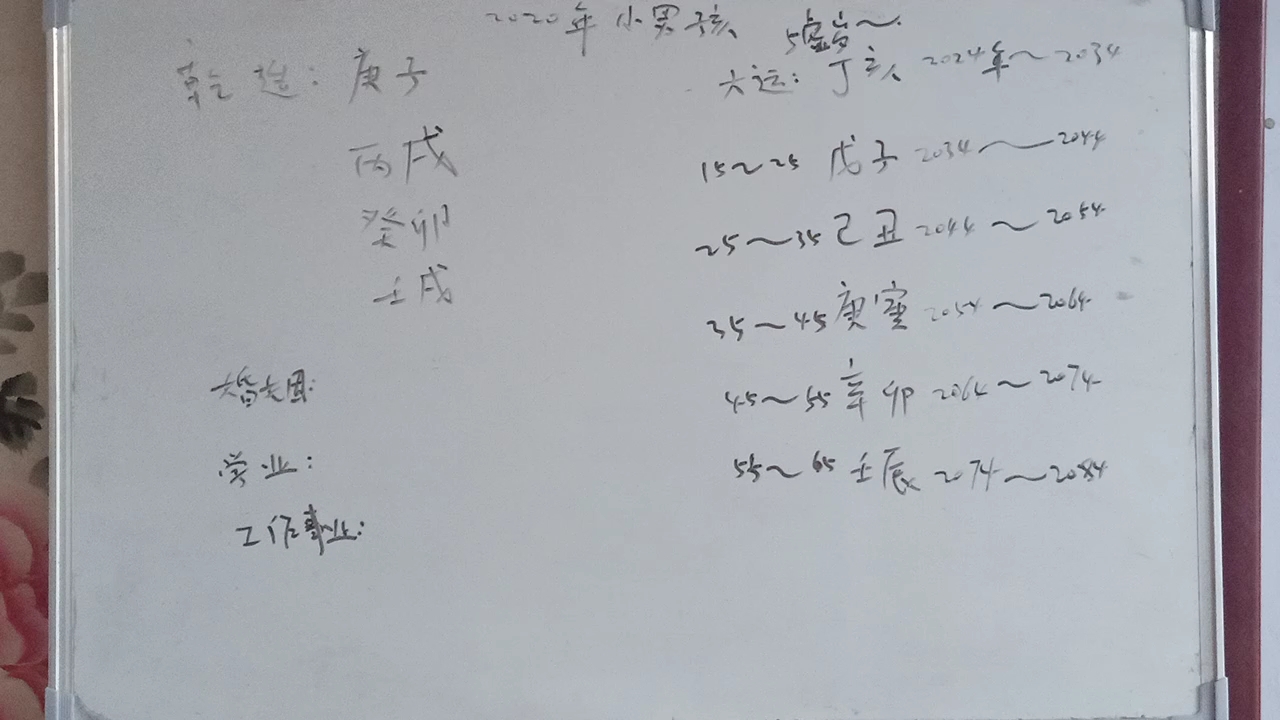 2020年小男孩
5虚岁~
乾造: 庚子
大运: 丁亥 2024年~2034
丙戌
15~25 戊子 2034~2044
癸卯
25~35 己丑 2044~2054
壬戌
35~45 庚寅 2054~2064
婚姻:
45~55 辛卯 2064~2074
学业:
55~65 壬辰 2074~2084
工作事业: